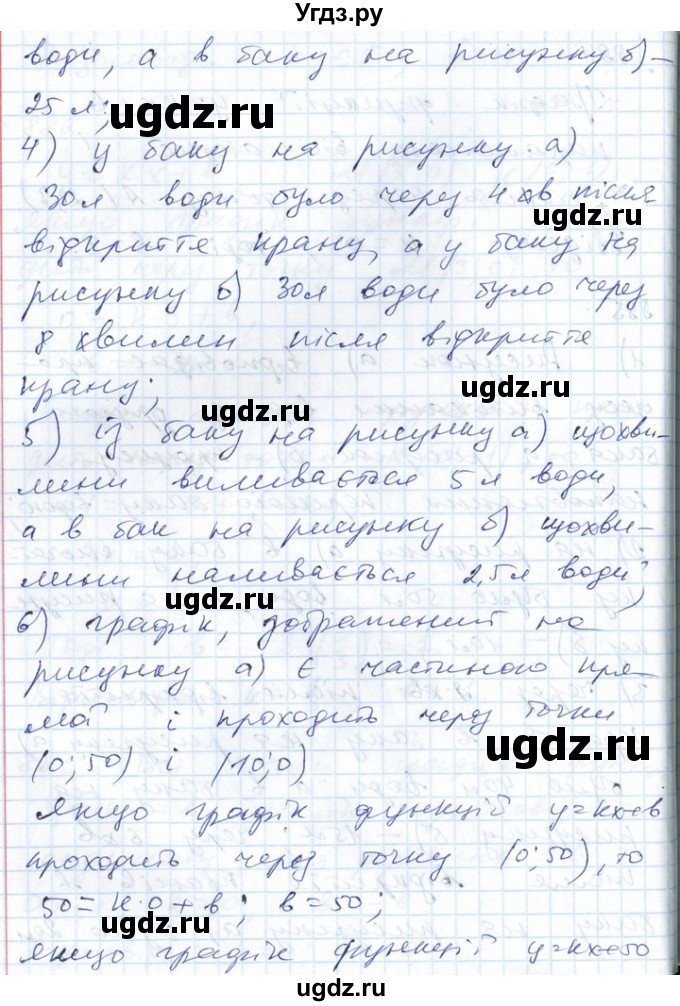 Угдз.ру
води, а в баку на рисунку б) –
25 л;
ugdz.ru
4) у баку на рисунку а)
30 л води було через 4 хв після
ugdz.ru
відкриття крану, а у баку на
рисунку б) 30 л води було через
8 хвилин після відкриття
крану;
ugdz.ru
ugdz.ru
5) із баку на рисунку а) щохви-
лини виливається 5 л води,
ugdz.ru
а в бак на рисунку б) щохви-
лини наливається 2,5 л води;
ugdz.ru
6) графік, зображений на
рисунку а) є частиною пря-
мої і проходить через точки
ugdz.ru
(0; 50) і (10; 0)
Якщо графік функцій y=kx+в
проходить через точку (0; 50), то
50=к·0+в; в=50;
якщо графік функцій y=kx+50
ugdz.ru